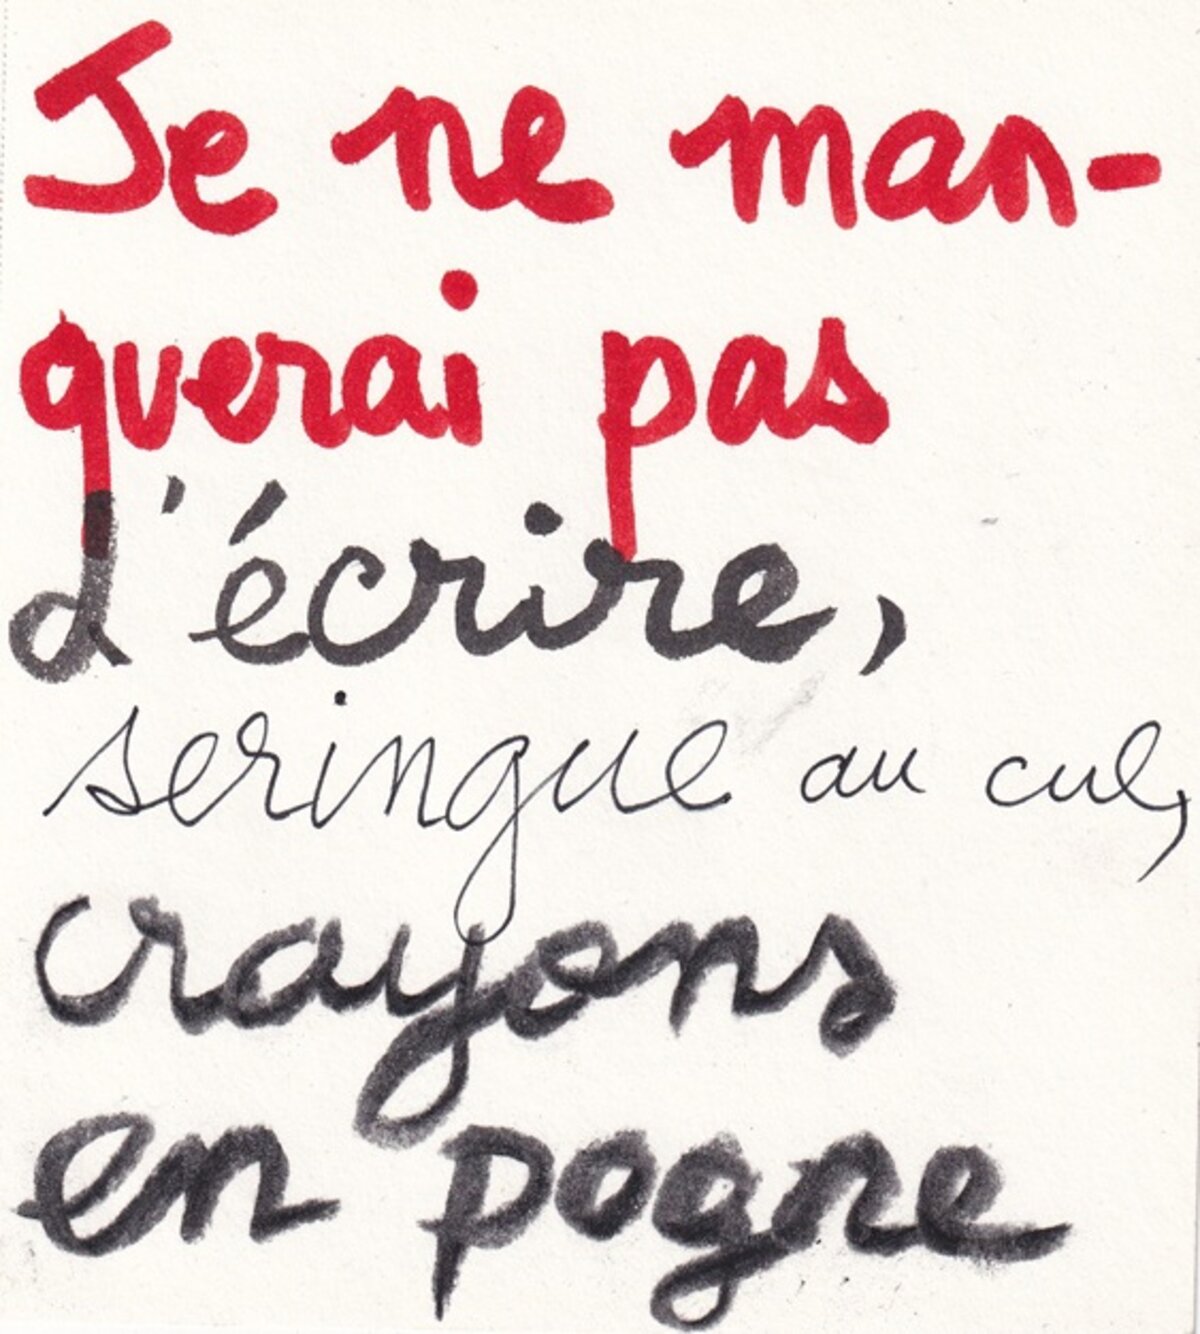 Je ne man-
querai pas
d'écrire,
seringue au cul,
crayons
en pogne